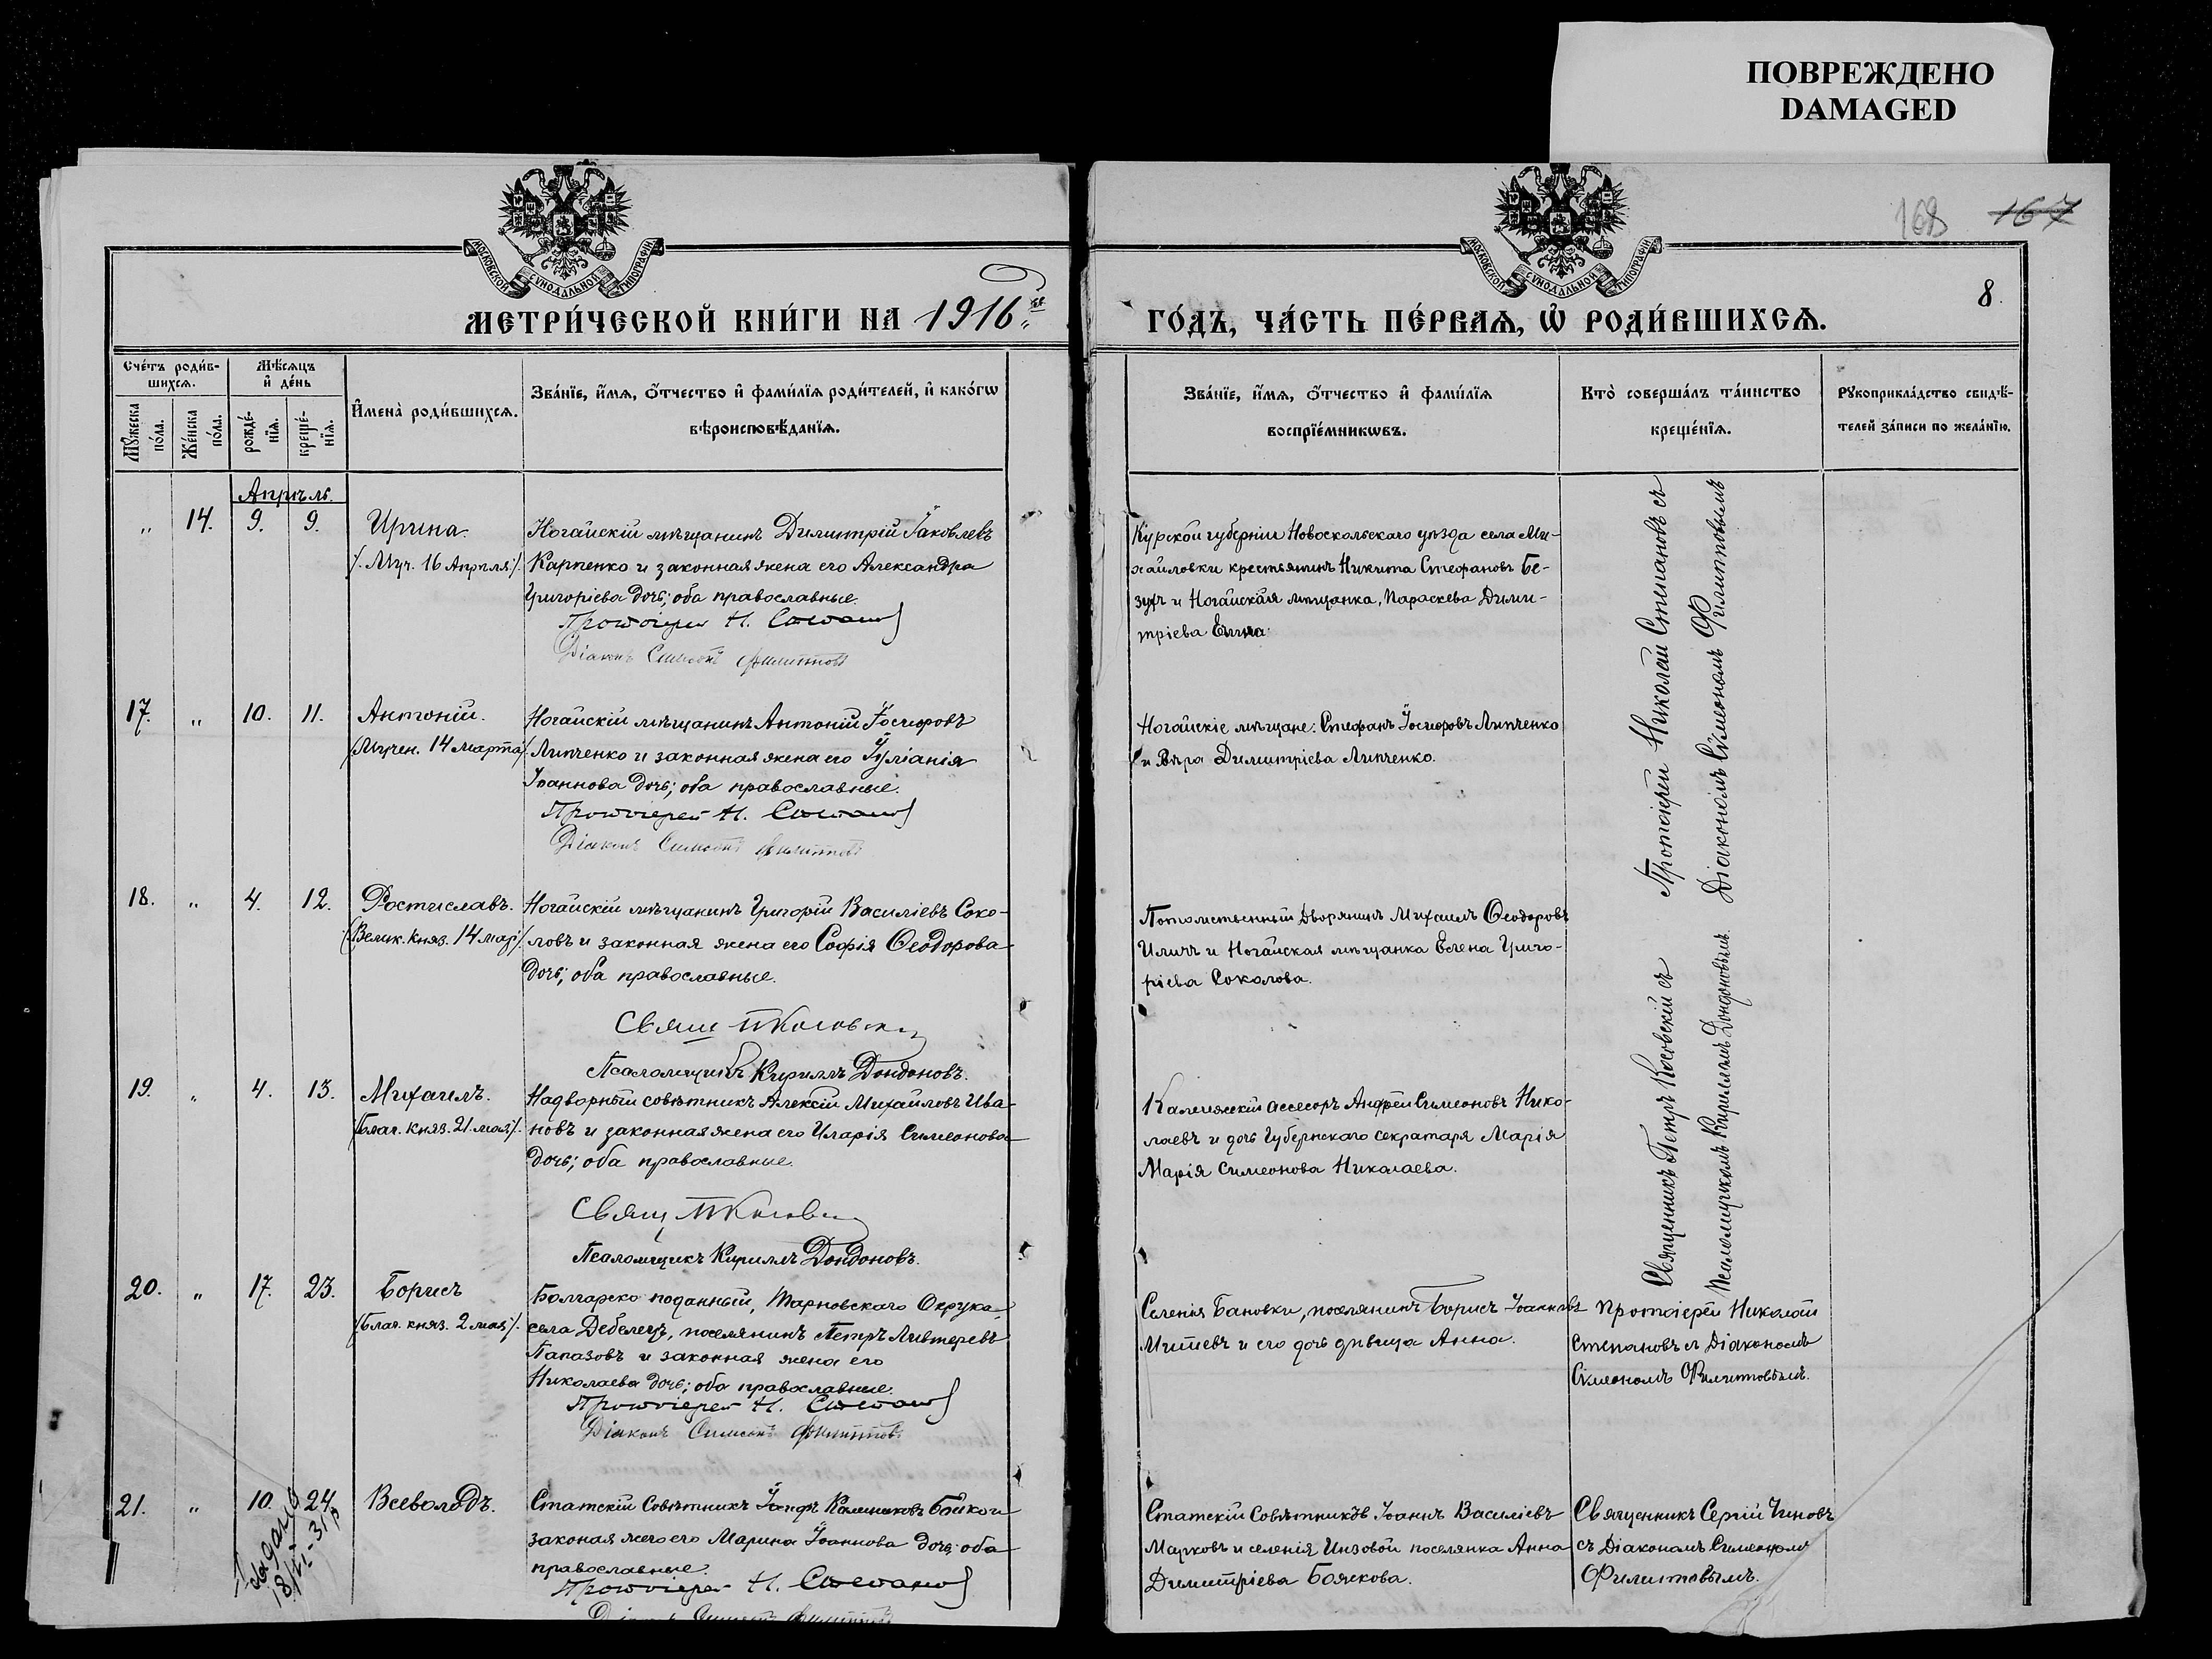 ПОВРЕЖДЕНО
DAMAGED
168 167
МОСКОВСКОЙ СѴНОДАЛЬНОЙ ТИПОГРАФІИ
МОСКОВСКОЙ СѴНОДАЛЬНОЙ ТИПОГРАФІИ
8.
МЕТРИ́ЧЕСКОЙ КНИ́ГИ НА 1916
ГО́ДЪ, ЧА́СТЬ ПЕ́РВАѦ, Ѡ҃ РОДИ́ВШИХСѦ.
Счéтъ роди́в-
шихсѧ.
Мꙋ́жеска
по́ла.
Жéнска
по́ла.
Мѣ́сѧцъ
и҆ дéнь
рождé-
нїѧ.
крещé-
нїѧ.
И҆мена̀ роди́вшихсѧ.
Зва́нїе, и҆́мѧ, ѻ҆́тчество и҆ фами́лїѧ роди́телей, и҆ како́гѡ
вѣроисповѣ́данїѧ.
Зва́нїе, и҆́мѧ, ѻ҆́тчество и҆ фами́лїѧ
воспрїе́мникѡвъ.
Кто̀ соверша́лъ та́инство
крещéнїѧ.
Рꙋкоприкла́дство свидѣ́-
телей за́писи по жела́нїю.
Апрѣль.
" 14. 9. 9. Ирина.
/. Муч. 16 Апрѣля./.
Ногайскій мѣщанинъ Димитрій Іаковлевъ
Карпенко и законная жена его Александра
Григоріева дочь; оба православные.
Протоіерей Н. Степанов
Діаконъ Симеонъ Филипповъ
Курской губерніи Новоскольскаго уѣзда села Ми-
хайловки крестьянинъ Никита Стефановъ Бе-
зухъ и Ногайская мѣщанка, Параскева Дими-
тріева
Протоіерей Николай Степановъ съ
Діакономъ Сѵмеономъ Филипповымъ
17. " 10. 11. Антоній.
/Мучен. 14 марта/.
Ногайскій мѣщанинъ Антоній Іосифовъ
Липченко и законная жена его Іуліанія
Іоаннова дочь; оба православные.
Протоіерей Н. Степанов
Діаконъ Симеонъ Филипповъ
Ногайскіе мѣщане: Стефанъ Іосифовъ Липченко
и Вѣра Димитріева Липченко.
18. " 4. 12. Ростиславъ.
/Велик. княз. 14 мар/.
Ногайскій мѣщанинъ Григорій Василіевъ Соко-
ловъ и законная жена его Софія Ѳеодорова
дочь; оба православные.
Свящ П Косовски
Псаломщикъ Кириллъ Дондоновъ.
Потомственный Дворянинъ Михаилъ Ѳеодоровъ
Иличъ и Ногайская мѣщанка Елена Григо-
ріева Соколова.
Священникъ Петръ Косовскій съ
Псаломщикомъ Кирилломъ Дондоновымъ.
19. " 4. 13. Михаилъ.
/Благ. княз. 21. мая/.
Надворный совѣтникъ Алексій Михайловъ Ива-
новъ и законная жена его Иларія Симеонова
дочь; оба православные.
Свящ П Косовски
Псаломщикъ Кириллъ Дондоновъ.
Коллежскій ассесоръ Андрей Симеоновъ Нико-
лаевъ и дочь Губернскаго секратаря Марія
Марія Симеонова Николаева.
20. " 17. 23. Борисъ
/Благ. княз. 2 мая/.
Болгарско поданный, Тарновскаго Округа
села Дебелецъ, поселянинъ Петръ
Папазовъ и законная жена его
Николаева дочь; оба православные.
Протоіерей Н. Степанов
Діаконъ Симеонъ Филипповъ
Селенія Бановки, поселянинъ Борисъ Іоанновъ
Мишевъ и его дочь дѣвица Анна.
Протоіерей Николай
Степановъ съ Діакономъ
Сѵмеономъ Филипповымъ.
21. " 10. 24. Всеволодъ.
18/VI-31 р
Статскій Совѣтникъ Бойко и
законая жена его Марина Іоаннова дочь; оба
православные.
Протоіерей Н. Степанов
Діаконъ Симеонъ Филипповъ
Статскій Совѣтникъ Іоаннъ Василіевъ
Марковъ и селенія Инзовой поселянка Анна
Димитріева Боякова.
Священникъ Сергій Чиновъ
съ Діакономъ Симеономъ
Филипповымъ.